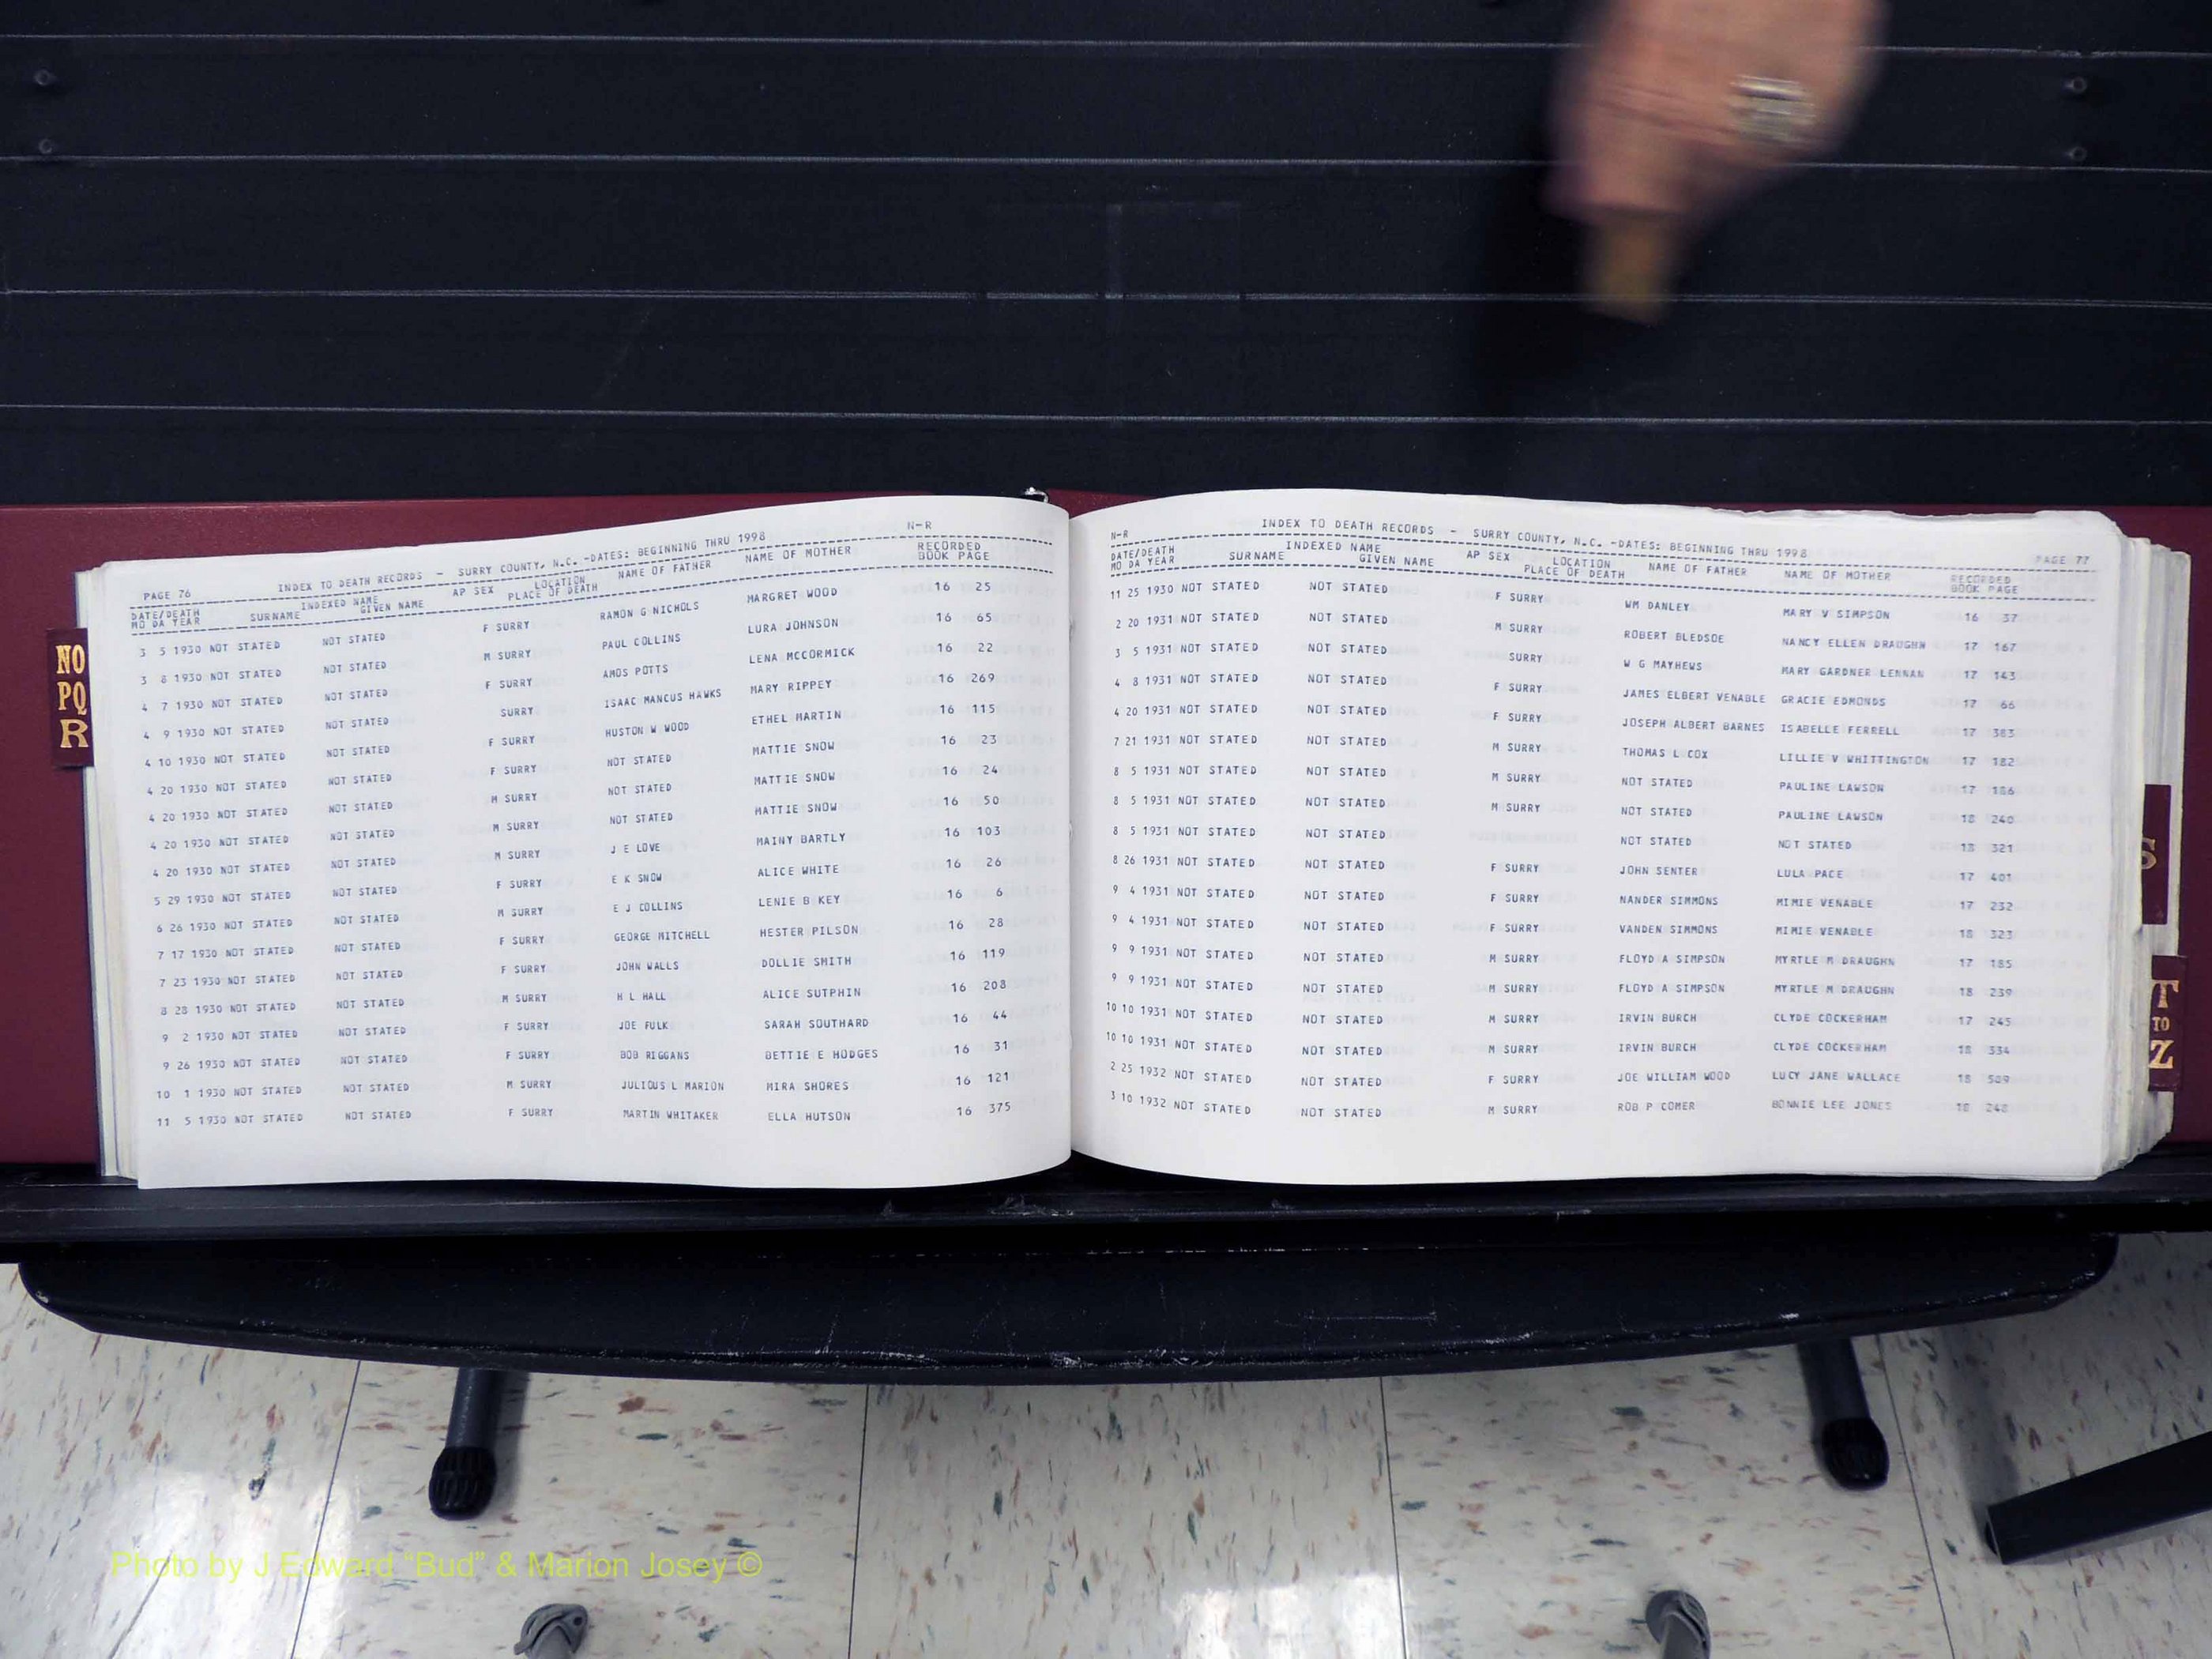 PAGE 76 INDEX TO DEATH RECORDS - SURRY COUNTY, N.C. -DATES: BEGINNING THRU 1998 N-R
DATE/DEATH INDEXED NAME AP SEX LOCATION NAME OF FATHER NAME OF MOTHER RECORDED
MO DA YEAR SURNAME GIVEN NAME PLACE OF DEATH BOOK PAGE
3 5 1930 NOT STATED NOT STATED F SURRY RAMON G NICHOLS MARGRET WOOD 16 25
3 8 1930 NOT STATED NOT STATED M SURRY PAUL COLLINS LURA JOHNSON 16 65
4 7 1930 NOT STATED NOT STATED F SURRY AMOS POTTS LENA MCCORMICK 16 22
4 9 1930 NOT STATED NOT STATED SURRY ISAAC MANCUS HAWKS MARY RIPPEY 16 269
4 10 1930 NOT STATED NOT STATED F SURRY HUSTON W WOOD ETHEL MARTIN 16 115
4 20 1930 NOT STATED NOT STATED F SURRY NOT STATED MATTIE SNOW 16 23
4 20 1930 NOT STATED NOT STATED M SURRY NOT STATED MATTIE SNOW 16 24
4 20 1930 NOT STATED NOT STATED M SURRY NOT STATED MATTIE SNOW 16 50
4 20 1930 NOT STATED NOT STATED M SURRY J E LOVE MAINY BARTLY 16 103
5 29 1930 NOT STATED NOT STATED F SURRY E K SNOW ALICE WHITE 16 26
6 26 1930 NOT STATED NOT STATED M SURRY E J COLLINS LENIE B KEY 16 6
7 17 1930 NOT STATED NOT STATED F SURRY GEORGE MITCHELL HESTER PILSON 16 28
7 23 1930 NOT STATED NOT STATED F SURRY JOHN WALLS DOLLIE SMITH 16 119
8 28 1930 NOT STATED NOT STATED M SURRY H L HALL ALICE SUTPHIN 16 208
9 2 1930 NOT STATED NOT STATED F SURRY JOE FULK SARAH SOUTHARD 16 44
9 26 1930 NOT STATED NOT STATED F SURRY BOB RIGGANS BETTIE E HODGES 16 31
10 1 1930 NOT STATED NOT STATED M SURRY JULIOUS L MARION MIRA SHORES 16 121
11 5 1930 NOT STATED NOT STATED F SURRY MARTIN WHITAKER ELLA HUTSON 16 375
N-R INDEX TO DEATH RECORDS - SURRY COUNTY, N.C. -DATES: BEGINNING THRU 1998 PAGE 77
DATE/DEATH INDEXED NAME AP SEX LOCATION NAME OF FATHER NAME OF MOTHER RECORDED
MO DA YEAR SURNAME GIVEN NAME PLACE OF DEATH BOOK PAGE
11 25 1930 NOT STATED NOT STATED F SURRY WM DANLEY MARY V SIMPSON 16 37
2 20 1931 NOT STATED NOT STATED M SURRY ROBERT BLEDSOE NANCY ELLEN DRAUGHN 17 167
3 5 1931 NOT STATED NOT STATED SURRY W G MAYHEWS MARY GARDNER LENNAN 17 143
4 8 1931 NOT STATED NOT STATED F SURRY JAMES ELBERT VENABLE GRACIE EDMONDS 17 66
4 20 1931 NOT STATED NOT STATED F SURRY JOSEPH ALBERT BARNES ISABELLE FERRELL 17 383
7 21 1931 NOT STATED NOT STATED M SURRY THOMAS L COX LILLIE V WHITTINGTON 17 182
8 5 1931 NOT STATED NOT STATED M SURRY NOT STATED PAULINE LAWSON 17 186
8 5 1931 NOT STATED NOT STATED M SURRY NOT STATED PAULINE LAWSON 18 240
8 5 1931 NOT STATED NOT STATED NOT STATED NOT STATED 18 321
8 26 1931 NOT STATED NOT STATED F SURRY JOHN SENTER LULA PACE 17 401
9 4 1931 NOT STATED NOT STATED F SURRY NANDER SIMMONS MIMIE VENABLE 17 232
9 4 1931 NOT STATED NOT STATED F SURRY VANDEN SIMMONS MIMIE VENABLE 18 323
9 9 1931 NOT STATED NOT STATED M SURRY FLOYD A SIMPSON MYRTLE M DRAUGHN 17 185
9 9 1931 NOT STATED NOT STATED M SURRY FLOYD A SIMPSON MYRTLE M DRAUGHN 18 239
10 10 1931 NOT STATED NOT STATED M SURRY IRVIN BURCH CLYDE COCKERHAM 17 245
10 10 1931 NOT STATED NOT STATED M SURRY IRVIN BURCH CLYDE COCKERHAM 18 334
2 25 1932 NOT STATED NOT STATED F SURRY JOE WILLIAM WOOD LUCY JANE WALLACE 18 509
3 10 1932 NOT STATED NOT STATED M SURRY ROB P COMER BONNIE LEE JONES 18 248
NO
PQ
R
S
T
TO
Z
Photo by J Edward “Bud” & Marion Josey ©